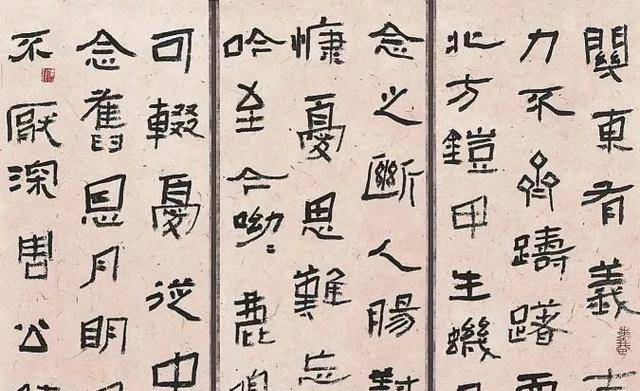 關東有義士
力不齊躊躇而
北方鎧甲生蟣
念之斷人腸對
慷憂思難忘
吟至今呦〻鹿鳴
可輟憂從中
念舊恩月明
不厭深周公